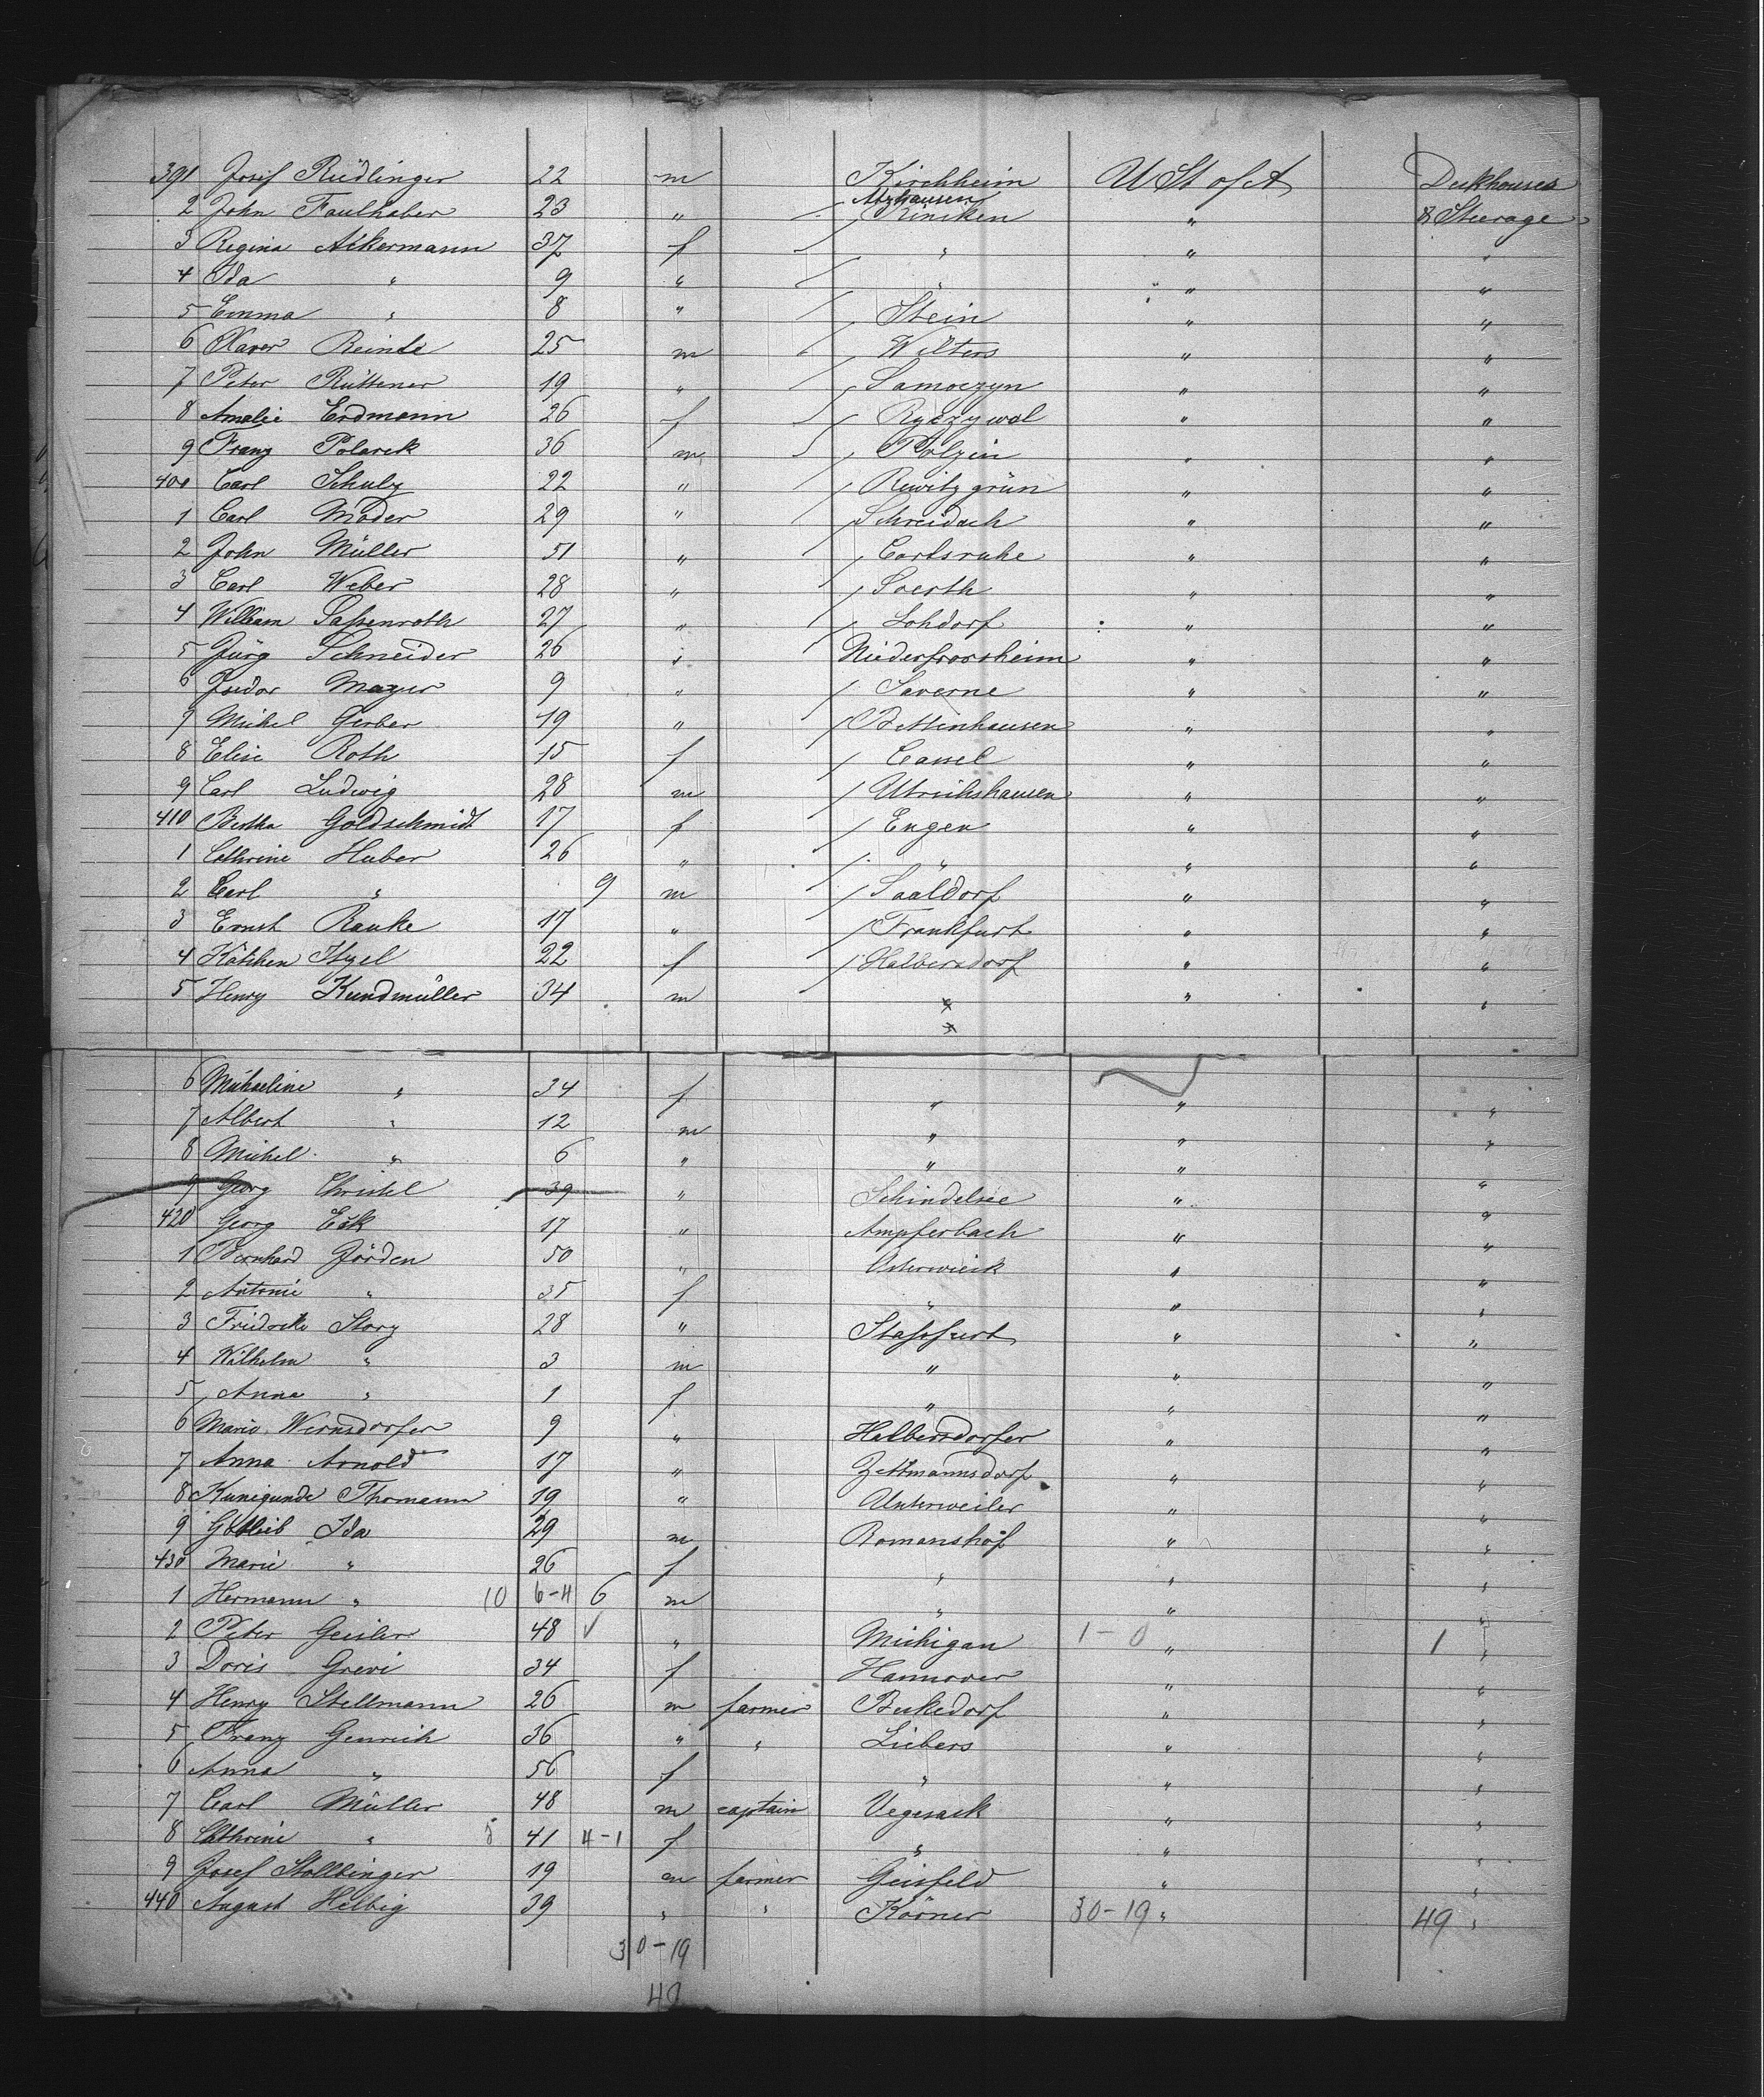 391 Josef Rüdlinger 22 m Kirchheim U St of A Deckhouses
2 John Faulhaber 23 " Atzhausen Riniken " & Steerage
3 Regina Ackermann 37 f " " "
4 Ida " 9 " " " "
5 Emma " 8 " Stein " "
6 Xaver Reinle 25 m Wilters " "
7 Peter Rüttener 19 " Samoczyn " "
8 Amalie Erdmann 26 f Ryczywol " "
9 Franz Polareck 36 m Polzin " "
400 Carl Schulz 22 " Rewitzgrün " "
1 Carl Moder 29 " Schreidach " "
2 John Müller 51 " Carlsruhe " "
3 Carl Weber 28 " Soerth " "
4 William Sassenroth 27 " Lohdorf " "
5 Jürg Schneider 26 " " "
6 Isidor Mayer 9 " Saverne " "
7 Michel Gerber 19 " Bettinhausen " "
8 Elise Roth 15 f Cassel " "
9 Carl Ludwig 28 m Utrichshausen " "
410 Bertha Goldschmidt 17 f Engen " "
1 Cathrine Huber 26 " " " "
2 Carl " 9 m Saaldorf " "
3 Ernst Ranke 17 " Frankfurt " "
4 Kätchen Itzel 22 f Halbersdorf " "
5 Henry Kundmüller 34 m " " "
"
6 Michaeline " 34 f " " "
7 Albert " 12 m " " "
8 Michel " 6 " " " "
9 Georg Christel 39 " Schindelsee " "
420 Georg Eck 17 " Ampferbach " "
1 Bernhard Jörden 50 " Osterwieck " "
2 Antonie " 35 f " " "
3 Fridrike Story 28 " Stassfurt " "
4 Wilhelm " 3 m " " "
5 Anna " 1 f " " "
6 Marie Wernsdorfer 9 " Halbersdorfer " "
7 Anna Arnold 17 " Zettmannsdorf " "
8 Kunigunde Thomann 19 " Unterweiler " "
9 Gottlieb Ida 29 m Romanshof " "
430 Marie " 26 f " " "
1 Hermann " 10 6-4 6 m " " "
2 Peter Geisler 48 " Michigan 1-0 " 1 "
3 Doris Grevi 34 f Hannover " "
4 Henry Stellmann 26 m farmer Beckedorf " "
5 Franz Genrich 36 " " Liebers " "
6 Anna " 56 f " " "
7 Carl Müller 48 m captain Vegesack " "
8 Cathrine " 5 41 4-1 f " " "
9 Josef Stollbinger 19 m farmer Geisfeld " "
440 August Helbig 39 " " Körner 30-19 " 49 "
30-19
49